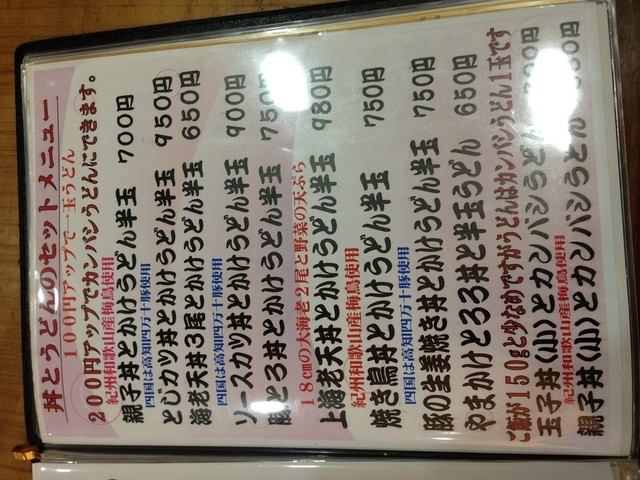 丼とうどんのセットメニュー
100円アップで一玉うどん
200円アップでカンバシうどんにできます。
紀州和歌山産梅鳥使用
親子丼とかけうどん半玉 700円
四国は高知四万十豚使用
とじカツ丼とかけうどん半玉 950円
海老天丼3尾とかけうどん半玉 650円
四国は高知四万十豚使用
ソースカツ丼とかけうどん半玉 900円
豚とろ丼とかけうどん半玉 750円
18㎝の大海老2尾と野菜の天ぷら
上海老天丼とかけうどん半玉 980円
紀州和歌山産梅鳥使用
焼き鳥丼とかけうどん半玉 750円
四国は高知四万十豚使用
豚の生姜焼き丼とかけうどん半玉 750円
やまかけとろろ丼と半玉うどん 650円
ご飯が150gと少なめですがうどんはカンバシうどん1玉です
玉子丼(小)とカンバシうどん 円
紀州和歌山産梅鳥使用
親子丼(小)とカンバシうどん 円